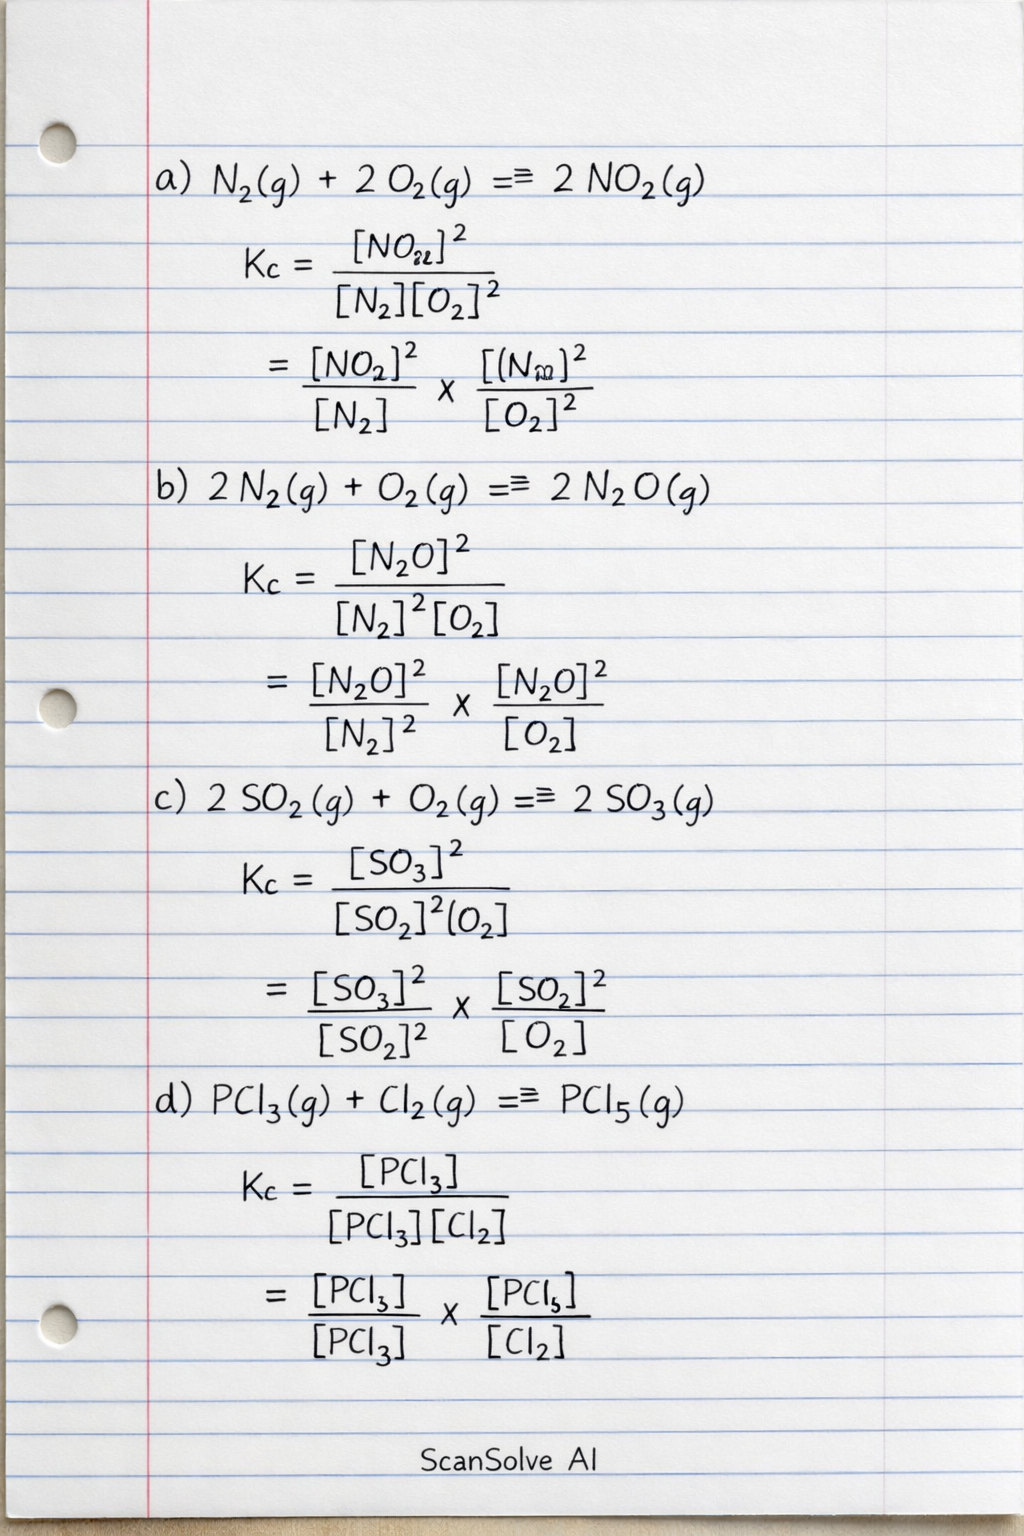 a) N₂(g) + 2 O₂(g) =≡ 2 NO₂(g)
Kc = [NO₂₂]² / [N₂][O₂]²
= [NO₂]² / [N₂] x [(N]² / [O₂]²
b) 2 N₂(g) + O₂(g) =≡ 2 N₂O(g)
Kc = [N₂O]² / [N₂]²[O₂]
= [N₂O]² / [N₂]² x [N₂O]² / [O₂]
c) 2 SO₂(g) + O₂(g) =≡ 2 SO₃(g)
Kc = [SO₃]² / [SO₂]²(O₂]
= [SO₃]² / [SO₂]² x [SO₂]² / [O₂]
d) PCl₃(g) + Cl₂(g) =≡ PCl₅(g)
Kc = [PCl₃] / [PCl₃][Cl₂]
= [PCl₃] / [PCl₃] x [PCl₅] / [Cl₂]
ScanSolve AI